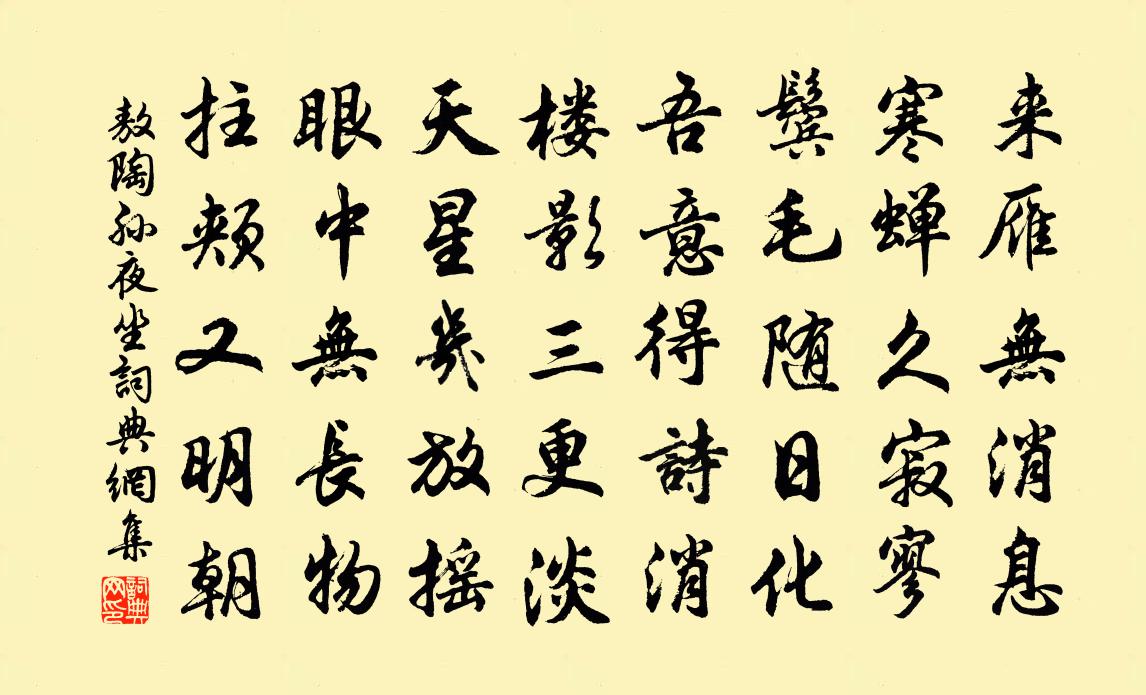 来雁無消息
寒蝉久寂寥
鬓毛随日化
吾意得詩消
楼影三更淡
天星幾放摇
眼中無長物
拄頰又明朝
敖陶孙夜坐詞典網集
詞典网印